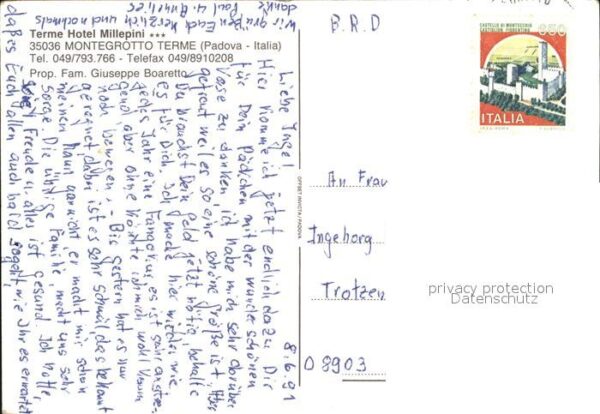 Terme Hotel Millepini ***
35036 MONTEGROTTO TERME (Padova - Italia)
Tel. 049/793.766 - Telefax 049/8910208
Prop. Fam. Giuseppe Boaretto
8.6.91
Liebe Inge!
Hier komme ich jetzt endlich dazu, Dir
für Dein Päckchen mit der wunderschönen
Vase zu danken, ich habe mich sehr darüber
gefreut weil es so eine schöne Größe ist. Aber
Du brauchst Dein Geld jetzt nötig, behalte
es für Dich. Ich mache hier wieder wie
jedes Jahr eine Fangokur, es ist sehr anstren-
gend aber ohne könnte ich mich wohl kaum
noch bewegen. - Bis gestern hat es nur
geregnet, dabei ist es sehr schwül das bekommt
meinem Mann gar nicht, er macht mir schon
Sorge. Die übrige Familie macht uns sehr
viel Freude u. alles ist gesund. Ich hoffe,
daß es Euch allen auch bald so geht, wie Ihr es erwartet
Wir grüßen Euch herzlich und nochmals
danke
B.R.D
650
CASTELLO DI MONTECCHIO
CASTIGLION FIORENTINO
ITALIA
OFFSET INVICTA / PADOVA
An Frau
Ingeborg
Trotzen
D 8903
privacy protection
Datenschutz